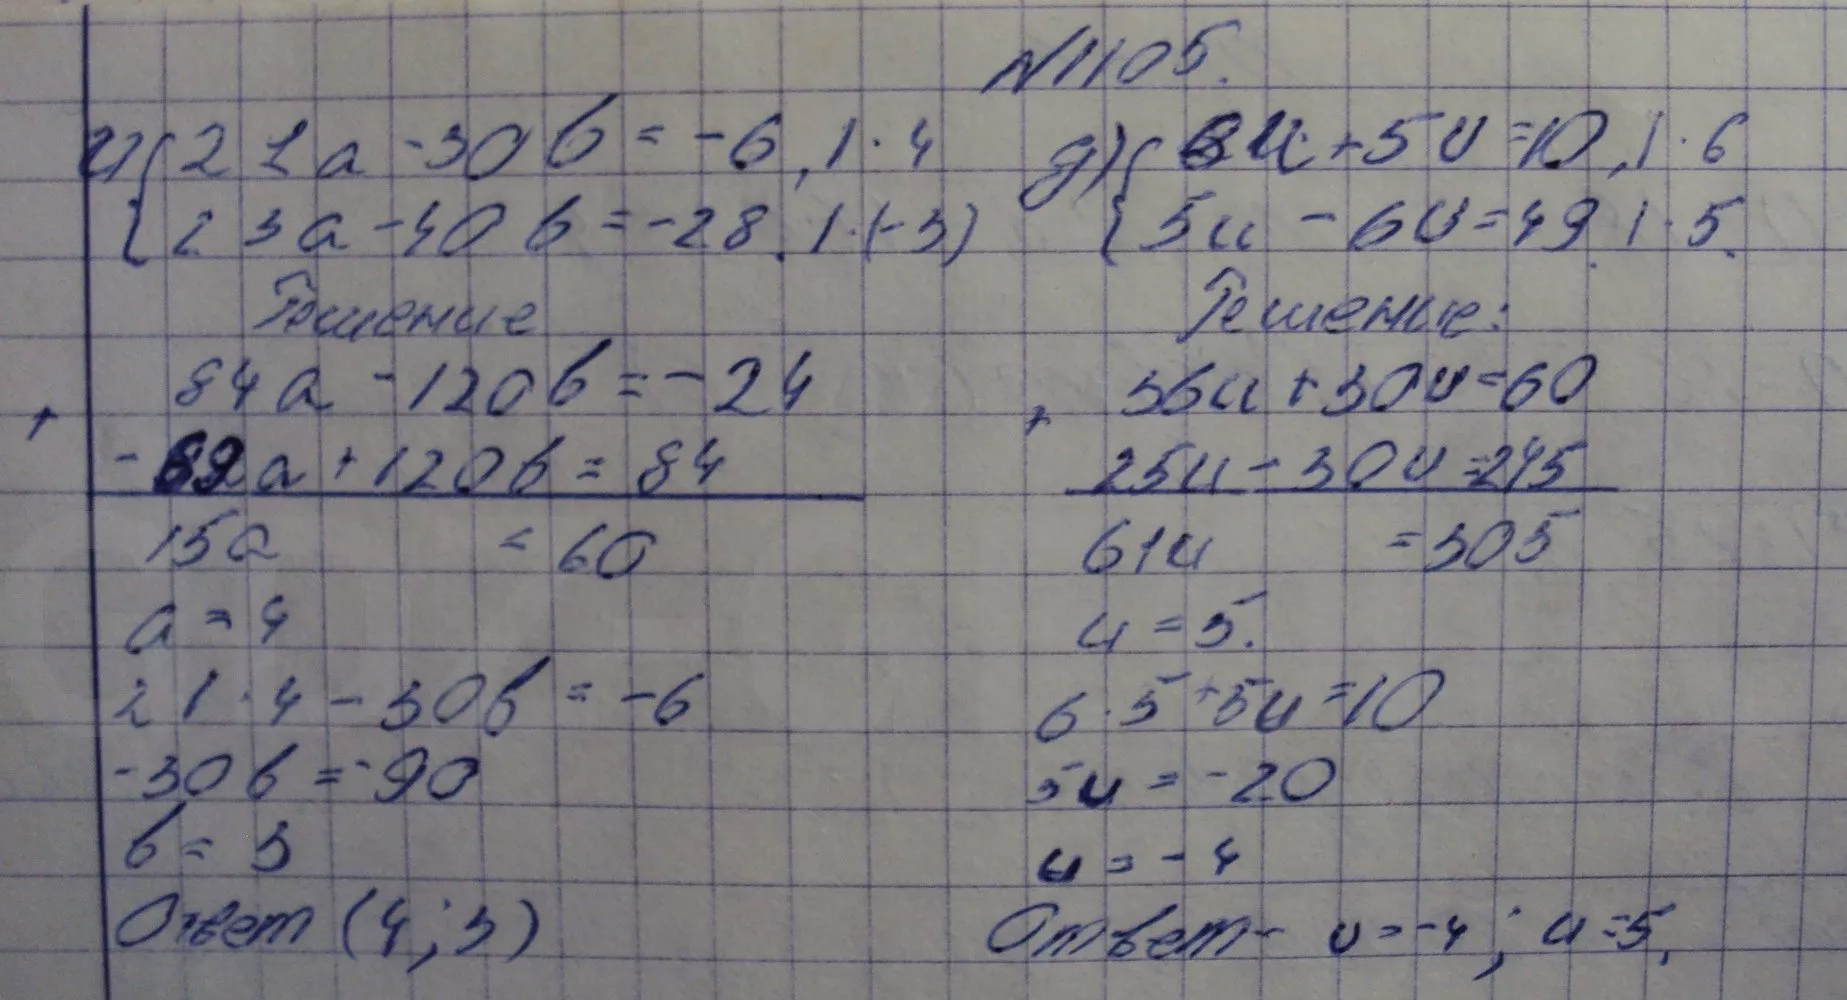 N1105.
г) { 21a - 30b = -6, | · 4
{ 23a - 40b = -28. | · (-3)
Решение
84a - 120b = -24
+
-69a + 120b = 84
15a = 60
a = 4
21 · 4 - 30b = -6
-30b = -90
b = 3
Ответ (4; 3)
д) { 6u + 5v = 10, | · 6
{ 5u - 6v = 49. | · 5.
Решение:
36u + 30v = 60
+
25u - 30v = 245
61u = 305
u = 5.
6 · 5 + 5v = 10
5v = -20
v = -4
Ответ - v = -4; u = 5.